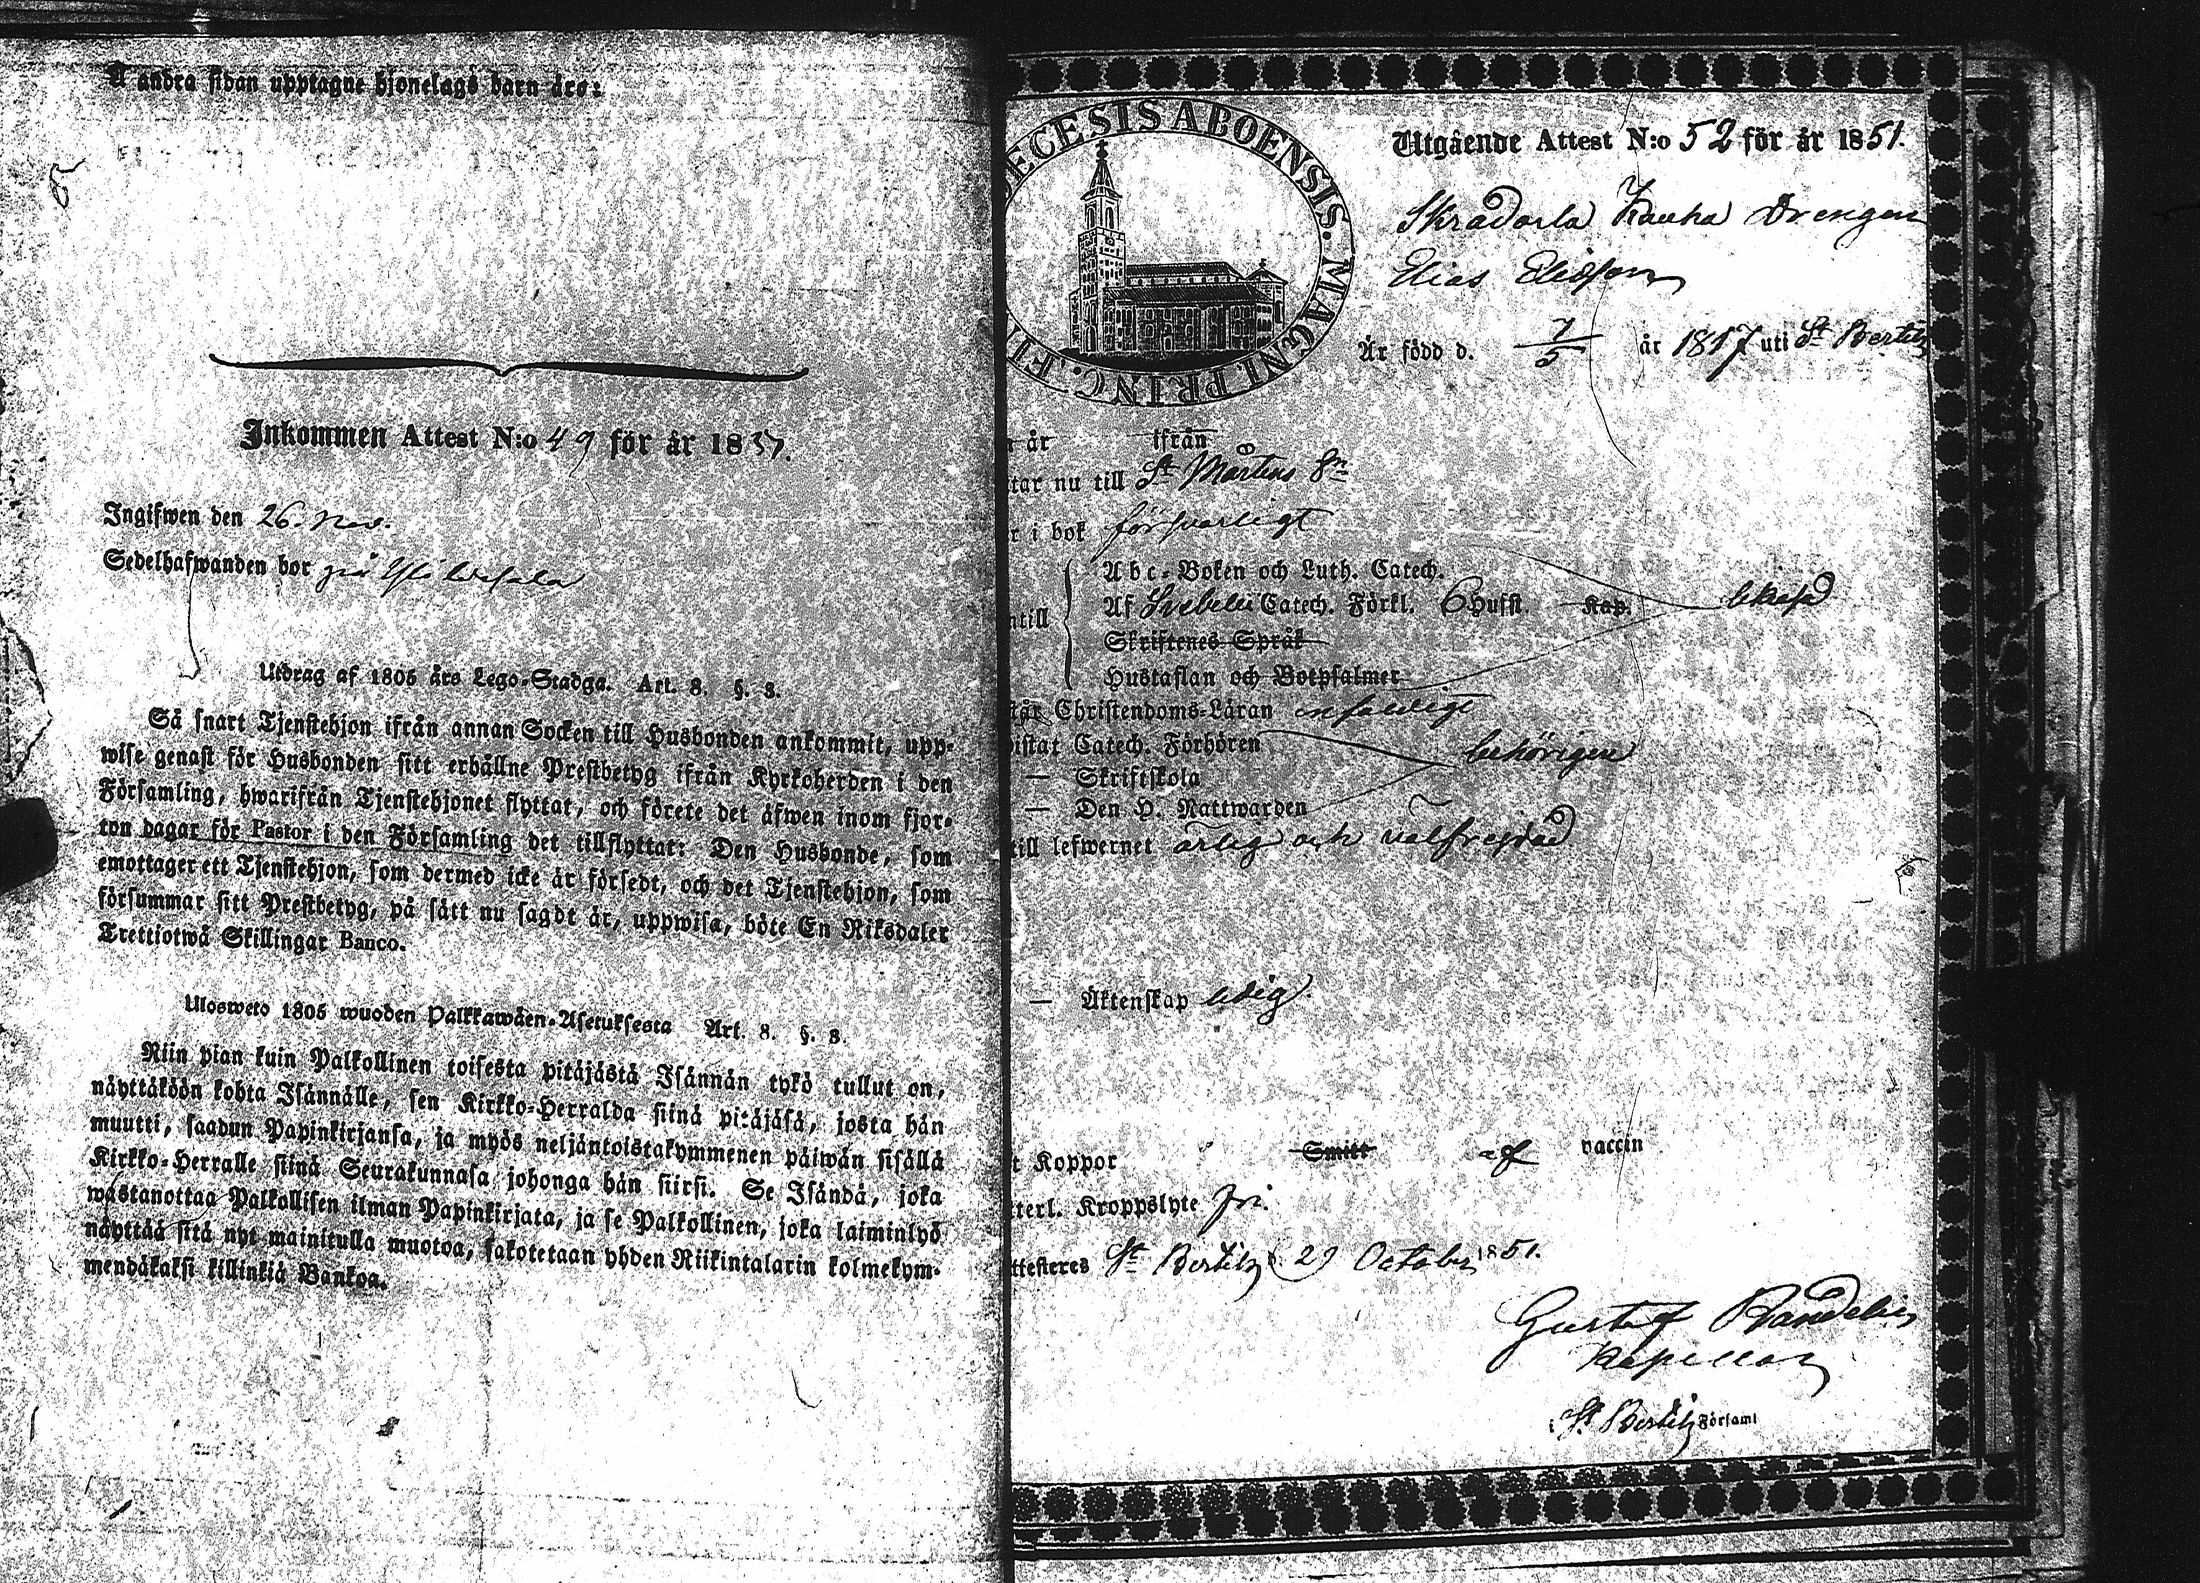 Å andra sidan upptagne hjonelags barn äro:
Inkommen Attest N:o 49 för år 1851.
Ingifwen den 26. Nov.
Sedelhafwanden bor på
Utdrag af 1805 års Lego-Stadga. Art. 8. §. 3.
Så snart Tjenstehjon ifrån annan Socken till Husbonden ankommit, upp-
wise genast för Husbonden sitt erhållne Prestbetyg ifrån Kyrkoherden i den
Församling, hwarifrån Tjenstehjonet flyttat, och förete det äfwen inom fjor-
ton dagar för Pastor i den Församling det tillflyttat: Den Husbonde, som
emottager ett Tjenstehjon, som dermed icke är försedt, och det Tjenstehjon, som
försummar sitt Prestbetyg, på sätt nu sagdt är, uppwisa, böte En Riksdaler
Trettiotwå Skillingar Banco.
Ulosweto 1805 wuoden Palkkawäen-Asetuksesta Art. 8. §. 3.
Niin pian kuin Palkollinen toisesta pitäjästä Isännän tykö tullut on,
näyttäköön kohta Isännälle, sen Kirkko-Herralda siinä pitäjäsä, josta hän
muutti, saadun Papinkirjansa, ja myös neljäntoistakymmenen päiwän sisällä
Kirkko-Herralle siinä Seurakunnasa johonga hän siirsi. Se Isändä, joka
wastanottaa Palkollisen ilman Papinkirjata, ja se Palkollinen, joka laiminlyö
näyttää sitä nyt mainitulla muotoa, sakotetaan yhden Riikintalarin kolmekym-
mendäkaksi killinkiä Bankoa.
ECESIS ABOENSIS. MAGNI. PRINC. FI
Utgående Attest N:o 52 för år 1851.
Skradarla Kauha Drengen
Elias Eliasson
Är född d. 7/5 år 1817 uti St Bertils
år ifrån
tar nu till St Mårtens Sn
r i bok försvarligt
Abc-Boken och Luth. Catech.
ntill Af Svebelii Catech. Förkl. 6 Hufst. Kap. läsad
Skriftenes Språk
Hustaflan och Botpsalmer
står Christendoms-Läran enfaldigt
istat Catech. Förhören behörigen
— Skriftskola
— Den H. Nattwarden
till lefwernet ärlig och välfrejdad
— Äktenskap ledig.
t Koppor Smitt af vaccin
terl. Kroppslyte fri.
ttesteres St Bertils 29 October 1851.
Gustaf Randelin
Kapellan
i St Bertils Församl